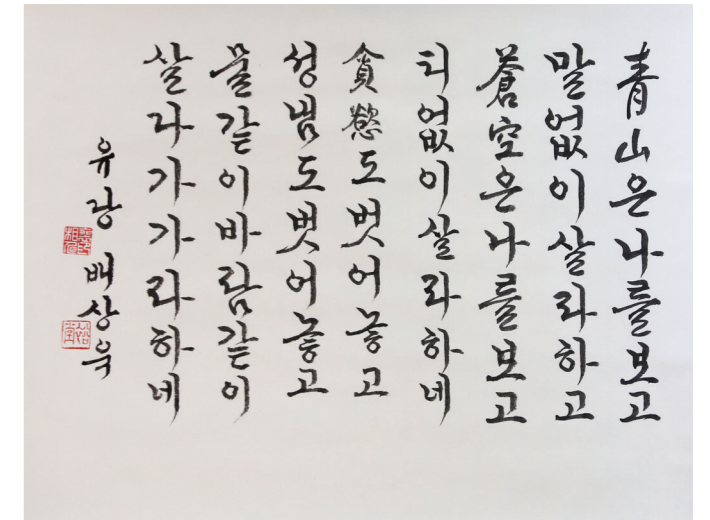 青山은나를보고
말없이살라하고
蒼空은나를보고
티없이살라하네
貪慾도벗어놓고
성냄도벗어놓고
물같이바람같이
살다가가라하네
유광 배상욱